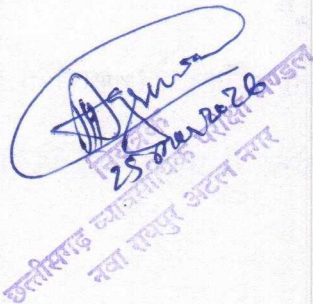 25 Mar 2026
नियंत्रक
छत्तीसगढ़ व्यावसायिक परीक्षा मण्डल
नवा रायपुर अटल नगर